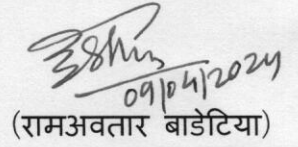 09/04/2024
(रामअवतार बाडेटिया)